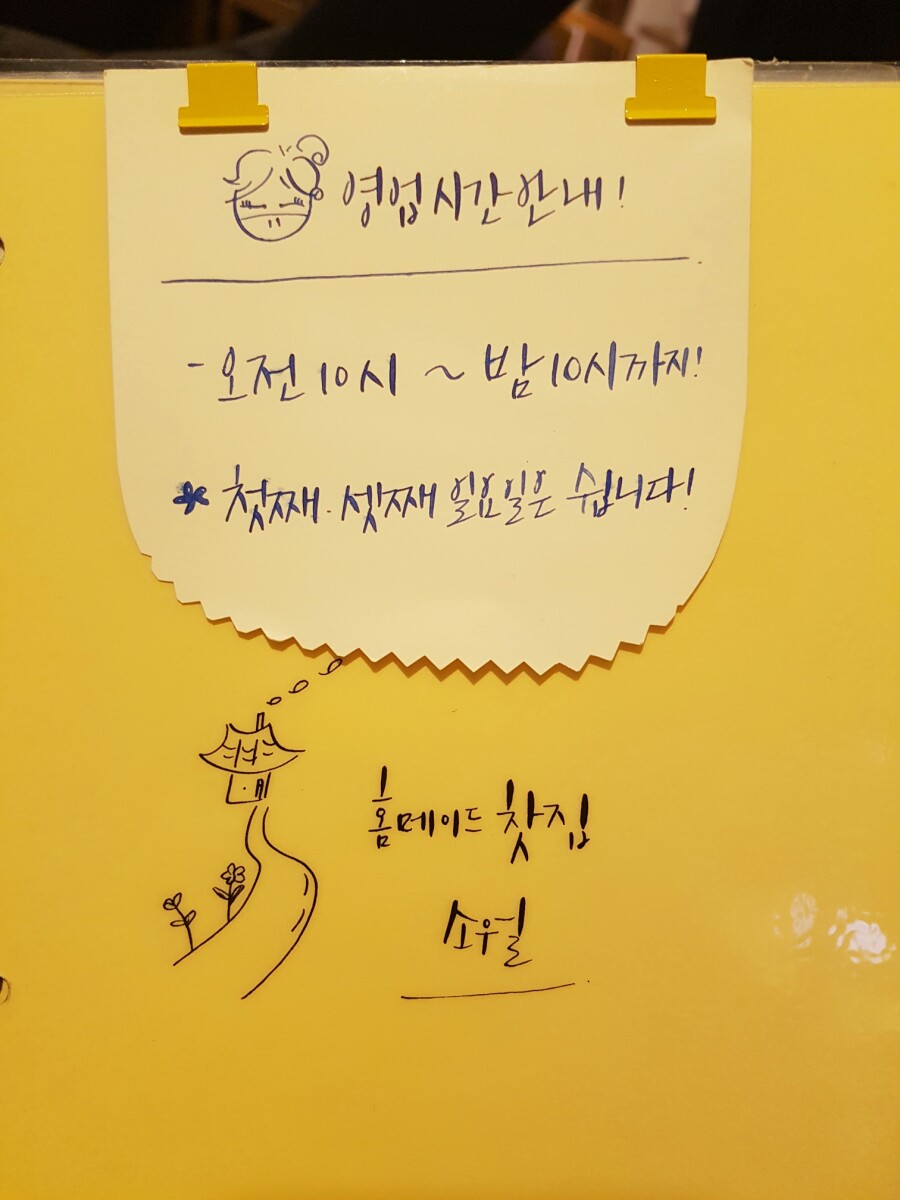 영업시간안내!
- 오전 10시 ~ 밤 10시까지!
* 첫째. 셋째 일요일은 쉽니다!
홈메이드 찻집
소우월